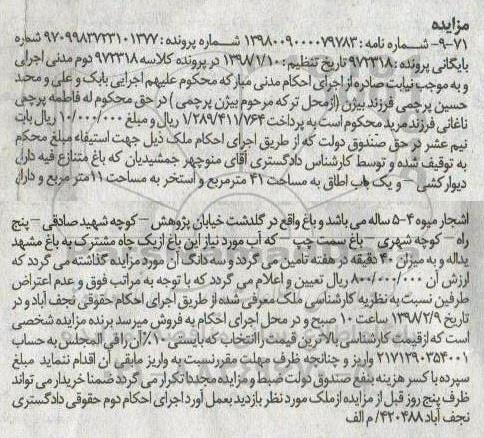 مزایده
۷۱-۹- شماره نامه : ۱۳۹۸۰۰۹۰۰۰۰۷۹۷۸۳ شماره پرونده : ۹۷۰۹۹۸۳۷۲۳۱۰۱۳۷۷ شماره
بایگانی پرونده : ۹۷۲۳۱۸ تاریخ تنظیم : ۱۳۹۸/۱/۱۰ در پرونده کلاسه ۹۷۲۳۱۸ دوم مدنی اجرایی
و به موجب نیابت صادره از اجرای احکام مدنی مبارکه محکوم علیهم اجرایی بابک و علی و محمد
حسین پرچمی فرزند بیژن (ازمحل ترکه مرحوم بیژن پرچمی ) در حق محکوم له فاطمه پرچمی
ناغانی فرزند مرید محکوم است به پرداخت ۱/۲۸۹/۴۱۱/۷۶۴ ریال و مبلغ ۱۰/۰۰۰/۰۰۰ ریال بابت
نیم عشر در حق صندوق دولت که از طریق اجرای احکام ملک ذیل جهت استیفاء مبلغ محکم
به توقیف شده و توسط کارشناس دادگستری آقای منوچهر جمشیدیان که باغ متنازع فیه دارای
دیوارکشی – و یک باب اطاق به مساحت ۴۱ مترمربع و استخر به مساحت ۱۱متر مربع و دارای
اشجار میوه ۴-۵ ساله می باشد و باغ واقع در گلدشت خیابان پژوهش – کوچه شهید صادقی – پنج
راه – کوچه شهری – باغ سمت چپ – که آب مورد نیاز این باغ از یک چاه مشترک به باغ مشهد
یداله و به میزان ۴۰ دقیقه در هفته تامین می گردد و سه دانگ آن مورد مزایده گذاشته می گردد که
ارزش آن ۸۰۰/۰۰۰/۰۰۰ ریال تعیین و اعلام می گردد که با توجه به مراتب فوق و عدم اعتراض
طرفین نسبت به نظریه کارشناسی ملک معرفی شده از طریق اجرای احکام حقوقی نجف آباد و در
تاریخ ۱۳۹۸/۲/۹ ساعت ۱۰ صبح و در محل اجرای احکام به فروش میرسد برنده مزایده شخصی
است که از قیمت کارشناسی بالاترین قیمت را انتخاب که بایستی ۱۰٪ آن را فی المجلس به حساب
۲۱۷۱۲۹۰۳۵۴۰۰۱ واریز و چنانچه ظرف مهلت مقرر نسبت به واریز مابقی آن اقدام ننماید مبلغ
سپرده با کسر هزینه بنفع صندوق دولت ضبط و مزایده مجددا تکرار می گردد ضمنا خریدار می تواند
ظرف پنج روز قبل از مزایده از ملک مورد نظر بازدید بعمل آورد اجرای احکام دوم حقوقی دادگستری
نجف آباد ۴۲۰۴۸۸/ م الف